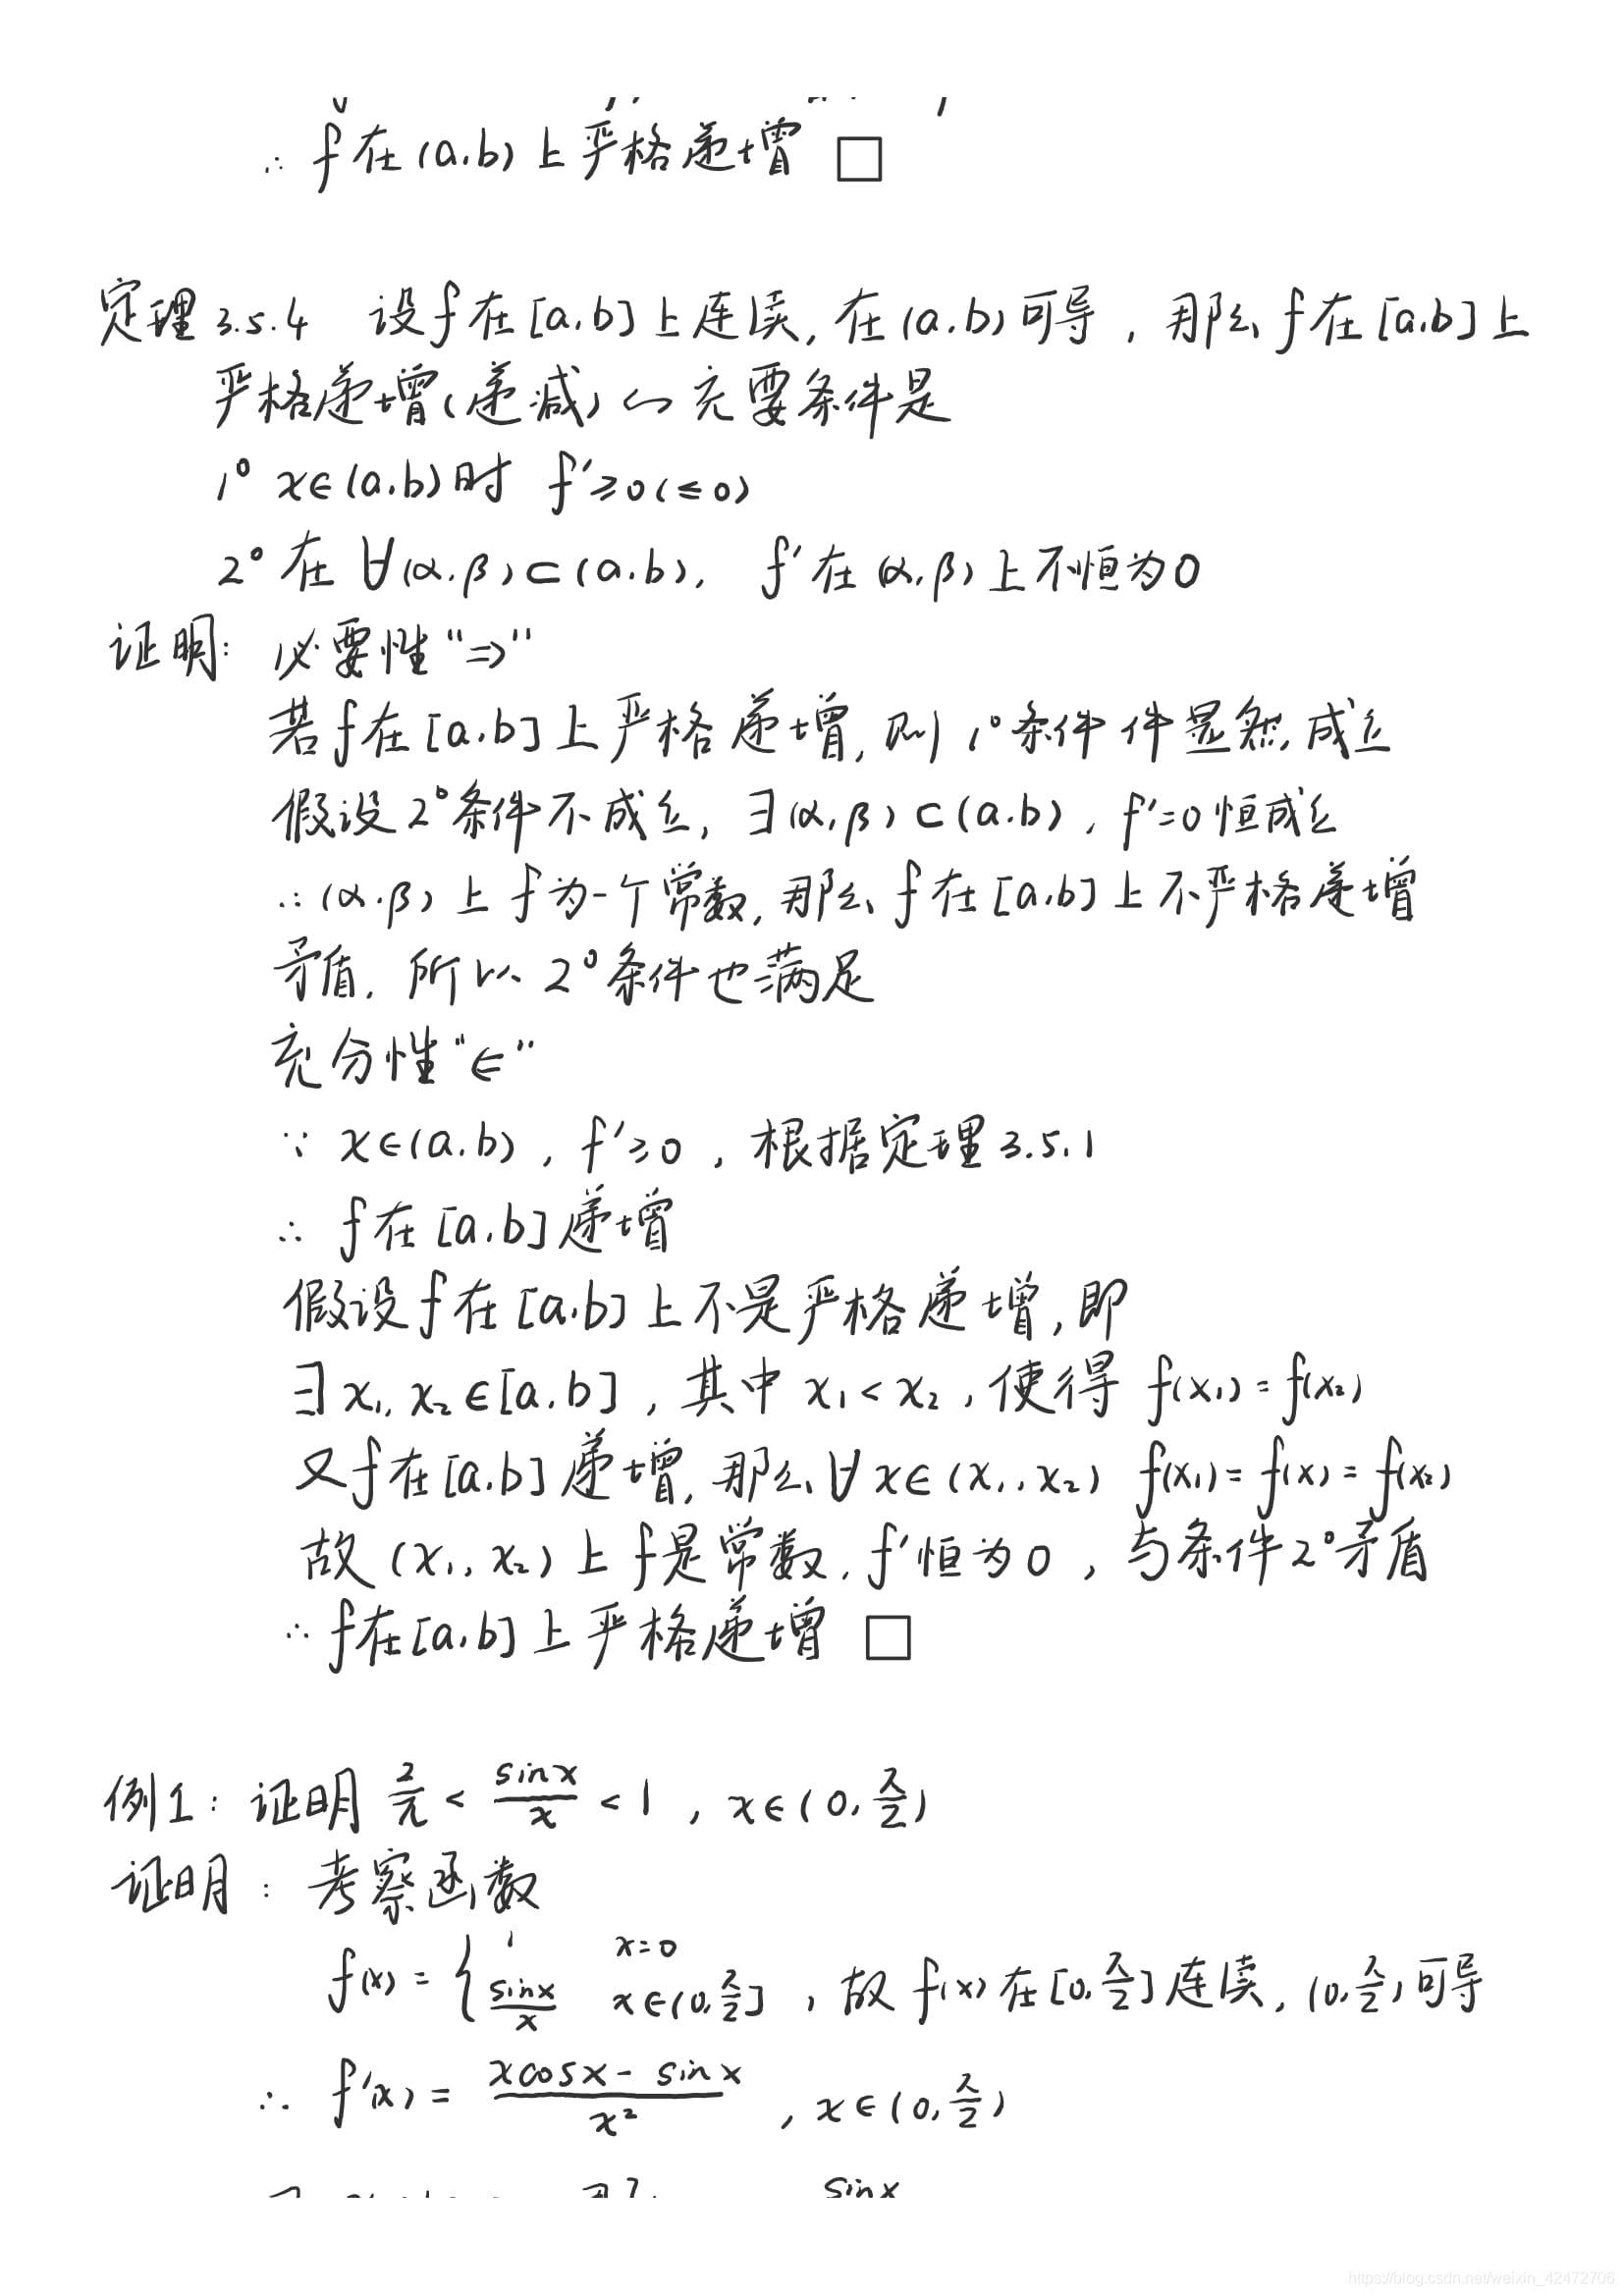 ∴ f在(a,b)上严格递增 □
定理3.5.4 设f在[a,b]上连续,在(a,b)可导,那么f在[a,b]上
严格递增(递减)的充要条件是
1° x∈(a,b)时 f'≥0(≤0)
2° 在∀(α,β)⊂(a,b), f'在(α,β)上不恒为0
证明: 必要性"⇒"
若f在[a,b]上严格递增,则1°条件件显然成立
假设2°条件不成立, ∃(α,β)⊂(a,b), f'=0恒成立
∴(α,β)上f为一个常数,那么f在[a,b]上不严格递增
矛盾,所以2°条件也满足
充分性"⇐"
∵ x∈(a,b), f'≥0, 根据定理3.5.1
∴ f在[a,b]递增
假设f在[a,b]上不是严格递增,即
∃x₁,x₂∈[a,b],其中x₁<x₂,使得f(x₁)=f(x₂)
又f在[a,b]递增,那么∀x∈(x₁,x₂) f(x₁)=f(x)=f(x₂)
故(x₁,x₂)上f是常数,f'恒为0,与条件2°矛盾
∴f在[a,b]上严格递增 □
例1: 证明 2/π < sinx/x < 1, x∈(0,π/2)
证明: 考察函数
f(x) = { 1 x=0; sinx/x x∈(0,π/2] ,故f(x)在[0,π/2]连续,(0,π/2)可导
∴ f'(x) = (xcosx - sinx)/x² , x∈(0,π/2)
sinx
https://blog.csdn.net/weixin_42472706